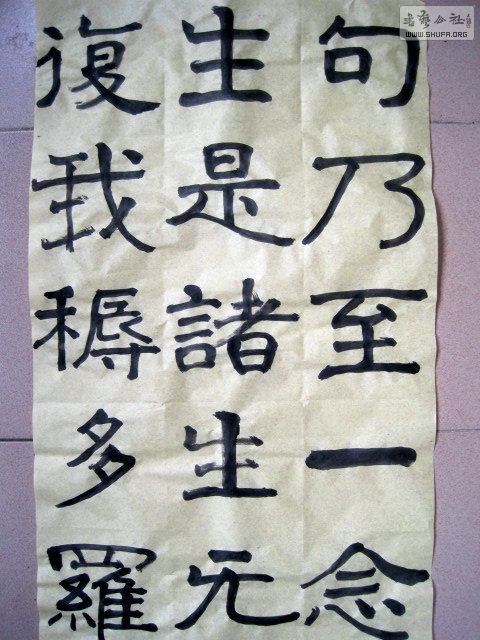 句乃至一念
生是諸生无
復我耨多羅
書藝公社
WWW.SHUFA.ORG